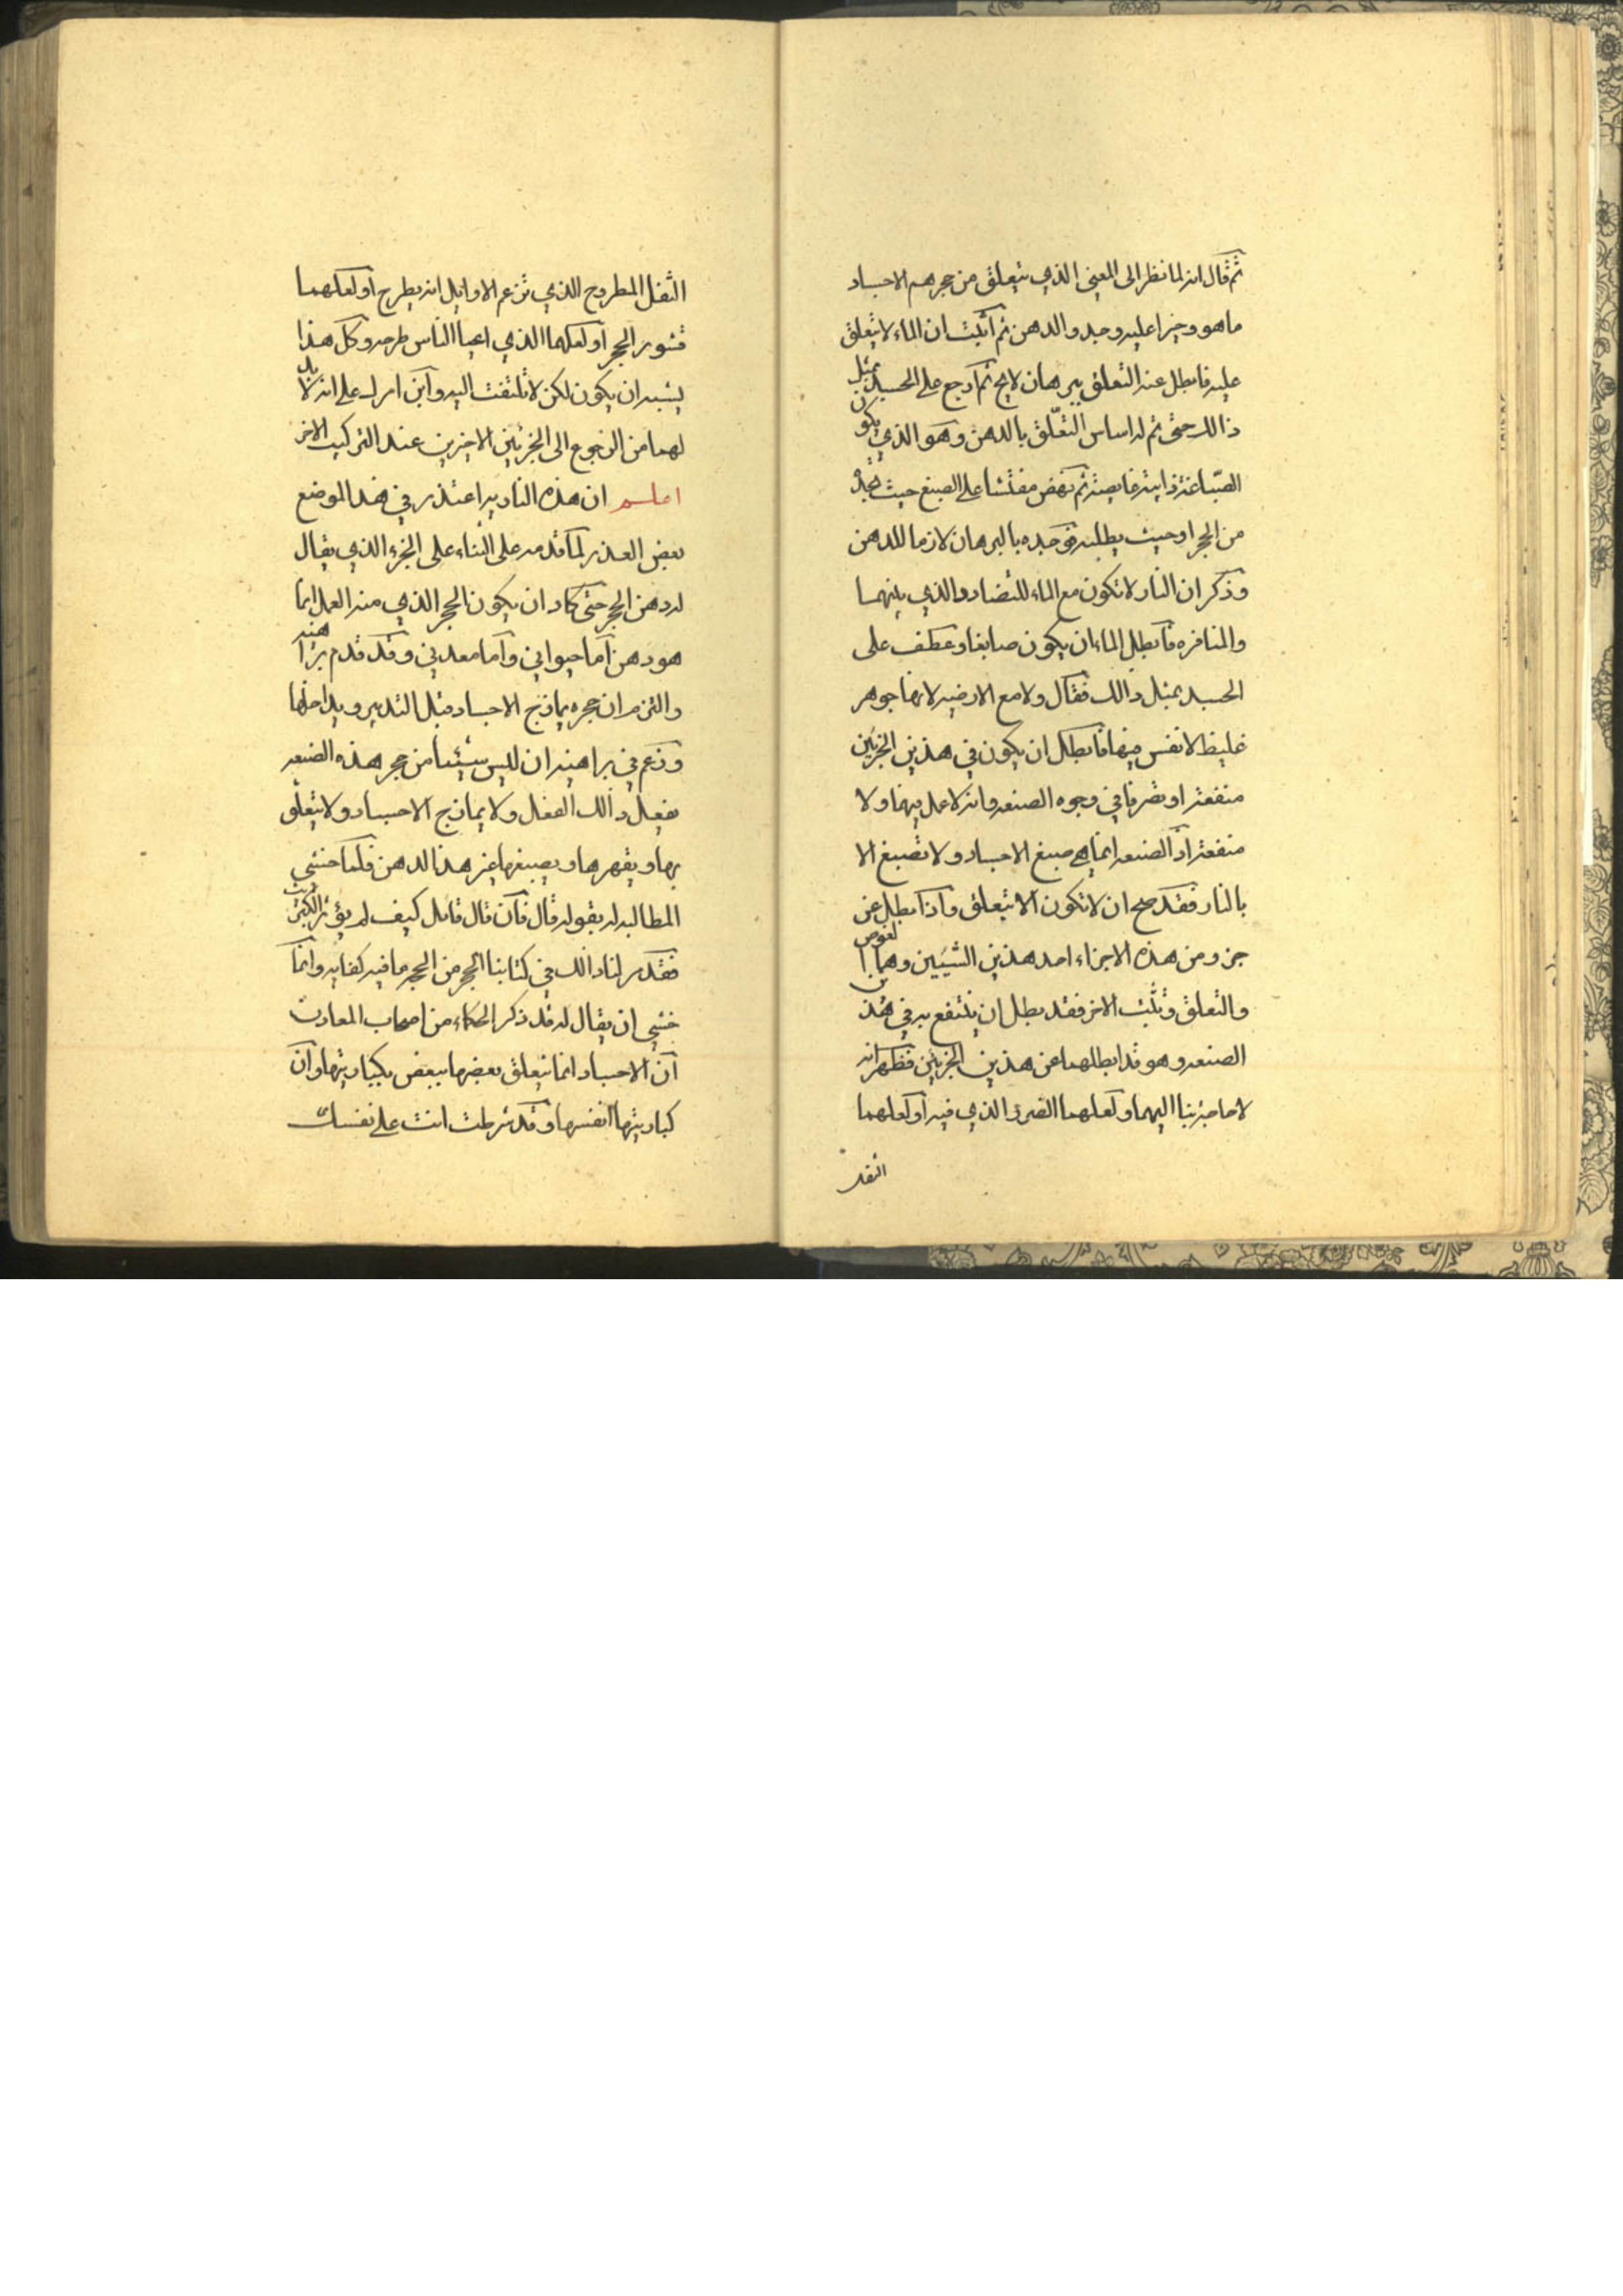 ثم قال انه لما نظر الى المعنى الذي يتعلق من حجرهم الاجساد
ما هو وخبرا عليه وجده والدهن ثم اثبت ان الماء لا يتعلق
عليه فابطل عنه التعلق ببرهان لايح ثم ارجع على الجسد بمثل
ذالك حتى تم له اساس التعلق بالدهن وهو الذي يكون
الصباغ ثم نهض مفتشا على الصبغ حيث يجده
من الحجر او حيث يطلبه فوجده بالبرهان لازما للدهن
وذكر ان النار لا تكون مع الماء للتضاد والذي بينهما
والمنافره فابطل الماء ان يكون صابغا وعطف على
الجسد بمثل ذالك فقال ولا مع الارضيه لانها جوهر
غليظ لا نفس فيها فابطل ان يكون في هذين الجزئين
منفعة او تصرفا في وجوه الصنعه وانه لا عمل فيها ولا
منفعة اذ الصنعه انما هي صبغ الاجساد ولا تصبغ الا
بالنار فقد صح ان لا تكون الا يتعلق واذا بطل عن
جزو من هذه الاجزاء احد هذين الشيئين وهما الغوص
والتعلق وثبت الاخر فقد بطل ان ينتفع به في هذه
الصنعه وهو قد ابطلهما عن هذين الجزئين فظهر انه
لا حاجة بنا اليهما ولعلهما الضرر الذي فيه او لعلهما
الثفل
الثفل المطروح الذي تزعم الاوايل انه يطرح او لعلهما
قشور الحجر او لعلهما الذي اعيا الناس طرحه وكل هذا
يشبه ان يكون لكن لا تلتفت اليه وابن امرك على انه لا بد
لهما من الرجوع الى الجزئين الاخرين عند التركيب الاخر
اعلم ان هذه النار يراعتذر في هذا الموضع
بعض العذر لما قدمه على البناء على الجزء الذي يقال
له دهن الحجر حتى كاد ان يكون الحجر الذي منه العمل انما
هو دهن اما حيواني واما معدني وقد قدم براهينه
والتزم ان حجره يمازج الاجساد قبل التدبير ويداخلها
وزعم في براهينه ان ليس شيئا من حجر هذه الصنعه
يفعل ذالك الفعل ولا يمازج الاجساد ولا يتعلق
بها ويقهرها ويصبغها غير هذا الدهن فلما خشي
المطالبه له بقوله قال فان قال قايل كيف لم يؤثر الكبريت
فقد مر لنا ذالك في كتابنا الحجر من الحجر ما فيه كفايه وانما
خشي ان يقال له قد ذكر الحكماء من اصحاب المعادن
ان الاجساد انما يتعلق بعضها ببعض بكباريتها وان
كباريتها انفسها وقد شرطت انت على نفسك